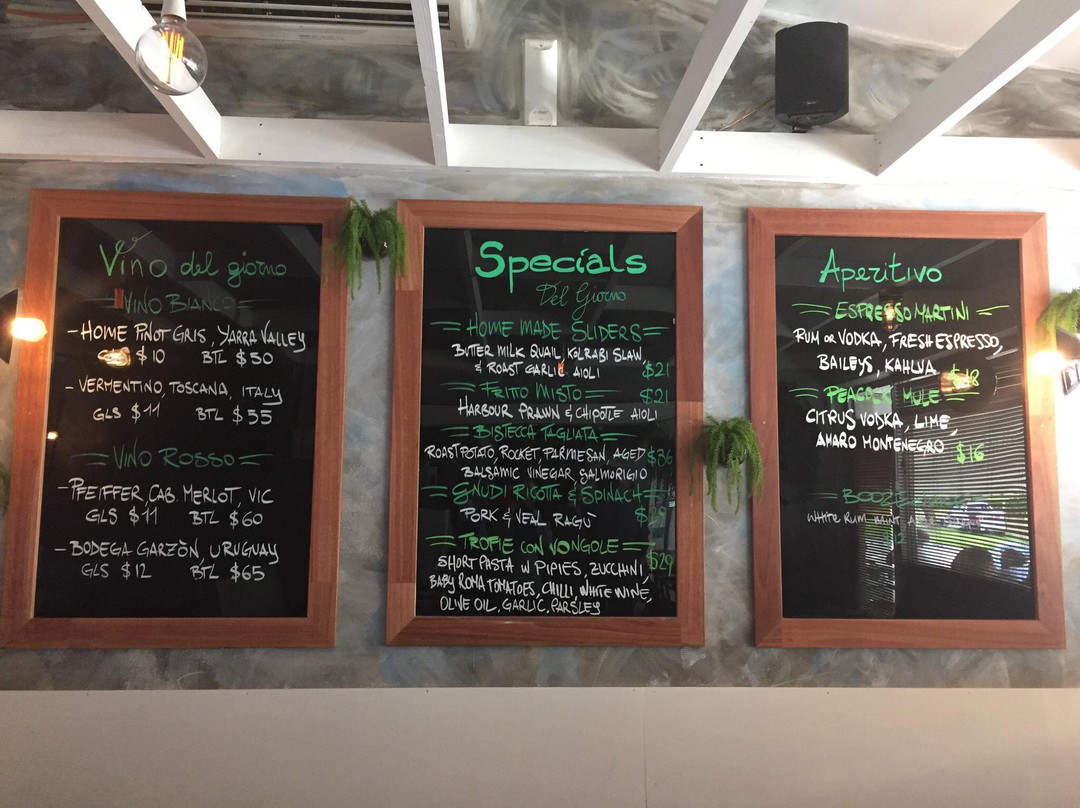 Vino del giorno
VINO BIANCO
- HOME PINOT GRIS, YARRA VALLEY
GLS $10 BTL $50
- VERMENTINO, TOSCANA, ITALY
GLS $11 BTL $55
VINO ROSSO
- PFEIFFER, CAB. MERLOT, VIC
GLS $11 BTL $60
- BODEGA GARZÒN, URUGUAY
GLS $12 BTL $65
Specials
Del Giorno
HOME MADE SLIDERS
BUTTER MILK QUAIL, KOLRABI SLAW,
& ROAST GARLIC AIOLI $21
FRITTO MISTO $21
HARBOUR PRAWN & CHIPOTLE AIOLI
BISTECCA TAGLIATA
ROAST POTATO, ROCKET, PARMESAN, AGED $36
BALSAMIC VINEGAR, SALMORIGIO
GNUDI RICOTTA & SPINACH
PORK & VEAL RAGÙ
TROFIE CON VONGOLE $29
SHORT PASTA W PIPIES, ZUCCHINI,
BABY ROMA TOMATOES, CHILLI, WHITE WINE,
OLIVE OIL, GARLIC, PARSLEY
Aperitivo
ESPRESSO MARTINI
RUM OR VODKA, FRESH ESPRESSO,
BAILEYS, KAHLUA $18
PEACOCK MULE
CITRUS VODKA, LIME,
AMARO MONTENEGRO $16
WHITE RUM, MINT